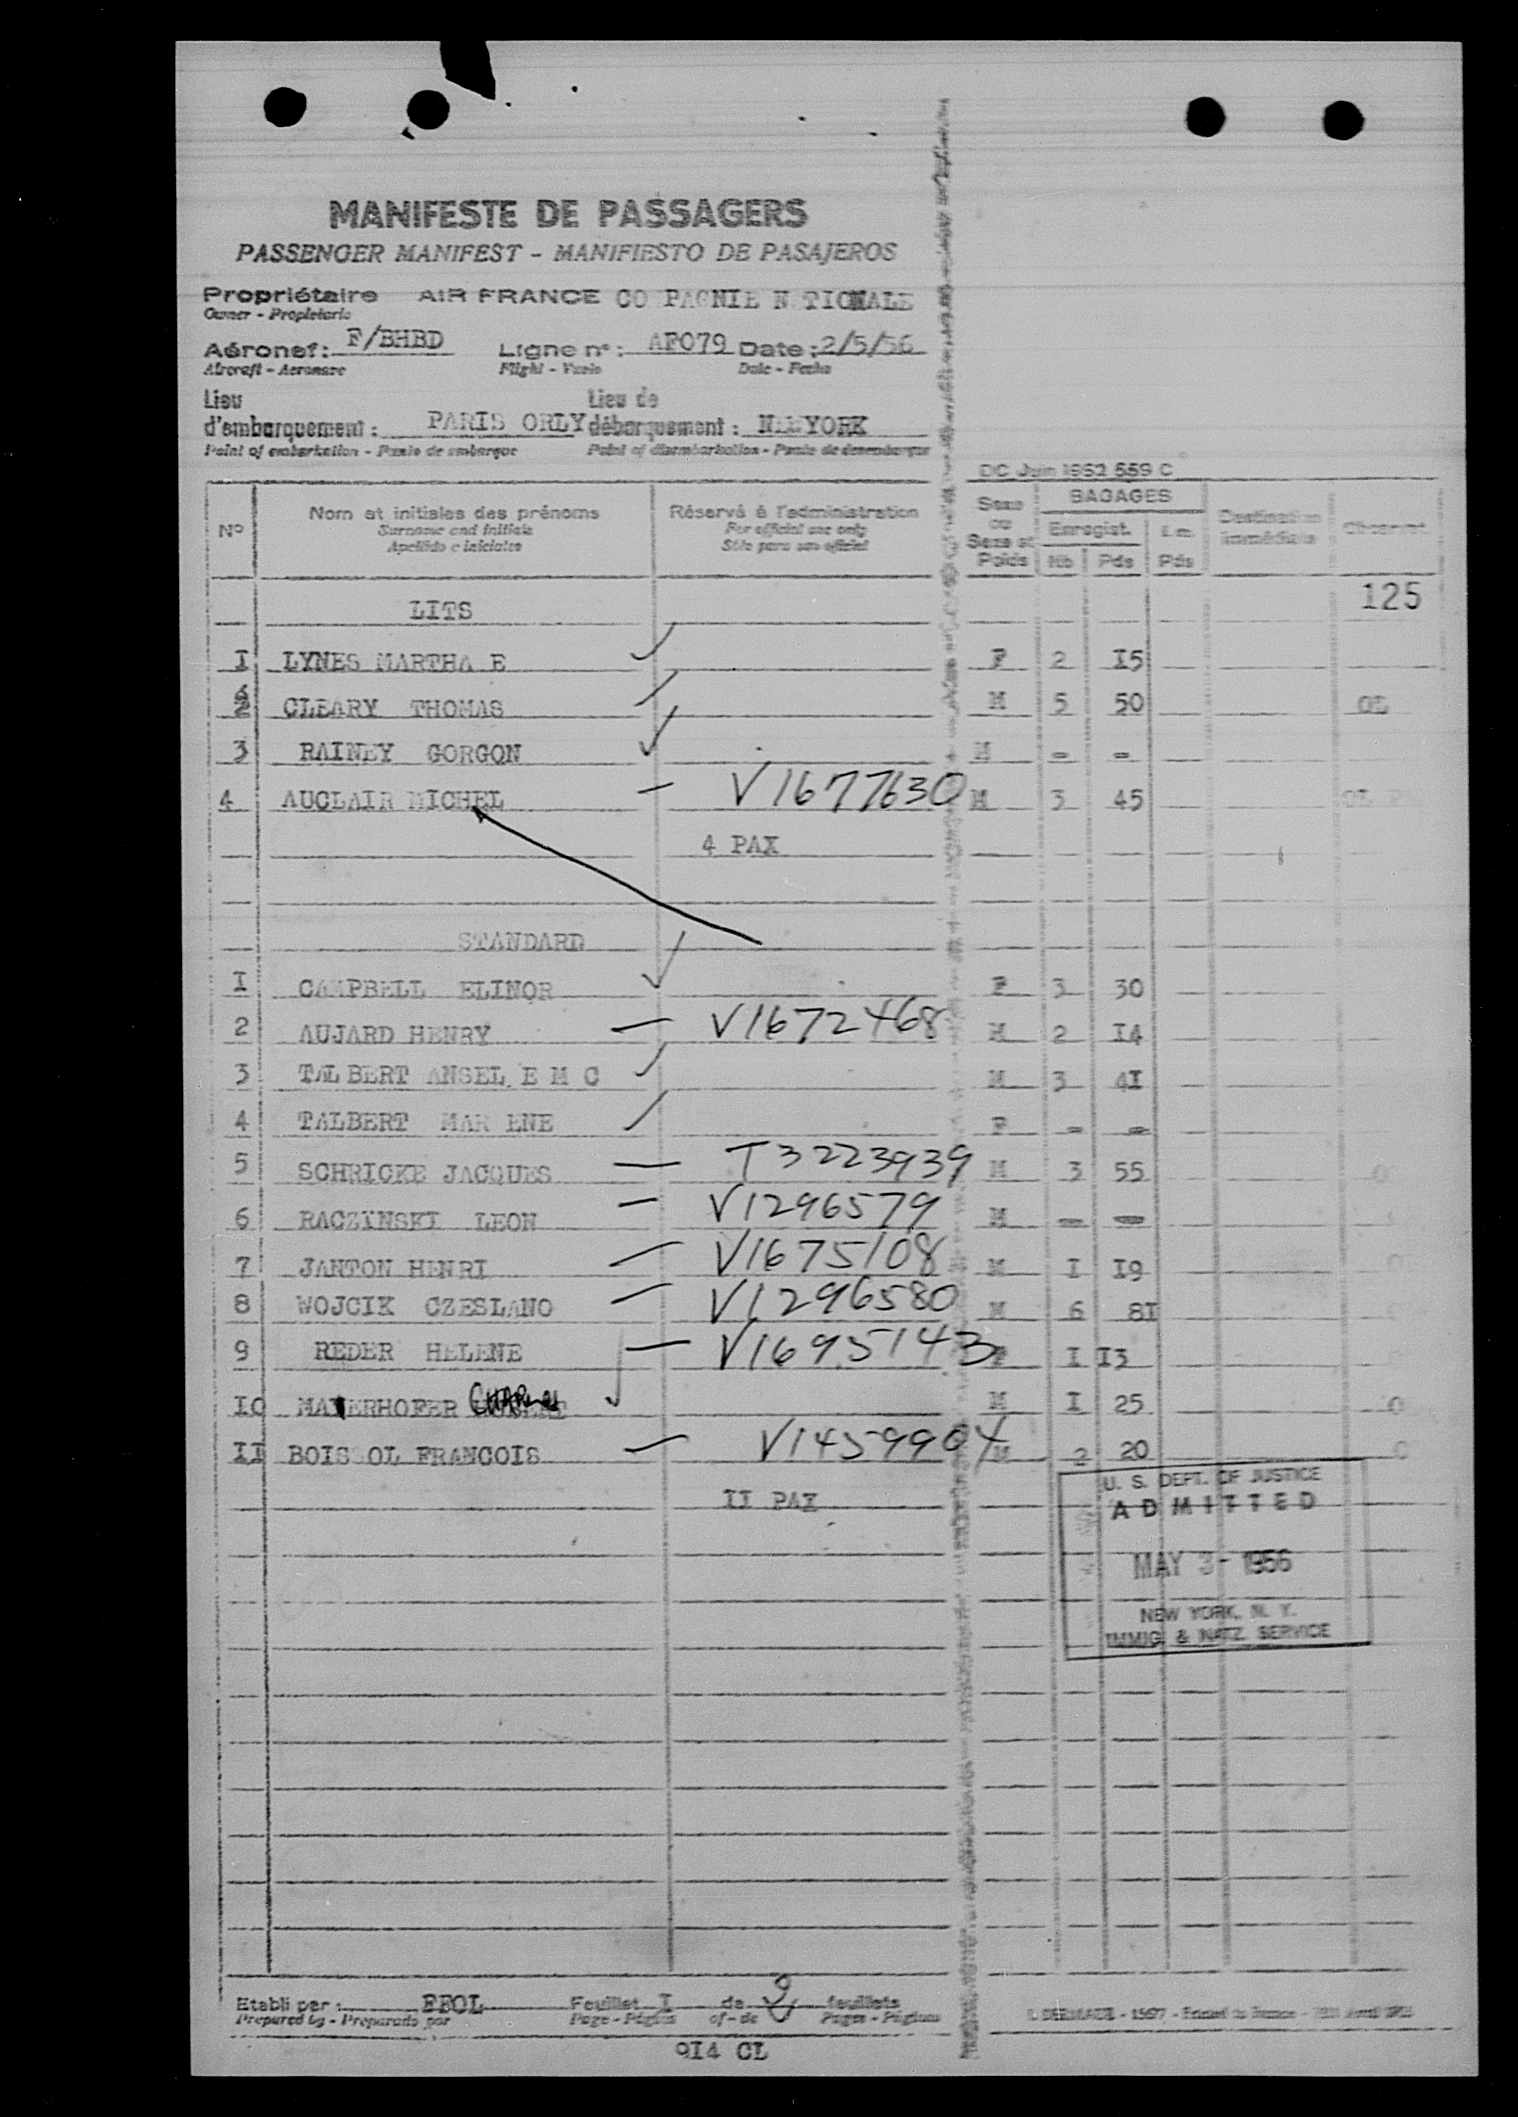 MANIFESTE DE PASSAGERS
PASSENGER MANIFEST - MANIFIESTO DE PASAJEROS
Propriétaire AIR FRANCE CO PAGNIE N TIONALE
Owner - Propietario
Aéronef: F/BHBD Ligne n°: AF079 Date: 2/5/56
Aircraft - Aeronave Flight - Vuelo Date - Fecha
Lieu d'embarquement: PARIS ORLY Lieu de débarquement: NEWYORK
Point of embarkation - Punto de embarque Point of disembarkation - Punto de desembarque
DC Juin 1952 559 C
N° Nom et initiales des prénoms Réservé à l'administration Sexe ou Sexe et Poids BAGAGES Destination immédiate Observat.
Surname and initials For official use only Enregist. E.m.
Apellido e iniciales Sólo para uso oficial Nb Pds Pds
LITS 125
I LYNES MARTHA E F 2 I5
2 CLEARY THOMAS M 5 50
3 RAINEY GORGON M - -
4 AUCLAIR MICHEL — V1677630 M 3 45
4 PAX
STANDARD
I CAMPBELL ELINOR F 3 30
2 AUJARD HENRY — V1672468 M 2 I4
3 TALBERT ANSEL E M C M 3 4I
4 TALBERT MAR ENE F - -
5 SCHRICKE JACQUES — T3223939 M 3 55
6 RACZYNSKI LEON — V1296579 M - -
7 JANTON HENRI — V1675108 M I I9
8 WOJCIK CZESLANO — V1296580 M 6 8I
9 REDER HELENE — V1695143 F I I3
IO MAYERHOFER CHARLES M I 25 0
II BOIS OL FRANCOIS — V1459904 M 2 20 0
II PAX
U. S. DEPT. OF JUSTICE
ADMITTED
MAY 3 - 1956
NEW YORK, N. Y.
IMMIG. & NATZ. SERVICE
Etabli par: FFOL Feuillet I de feuillets
Prepared by - Preparado por Page - Página of - de Pages - Páginas
9I4 CL